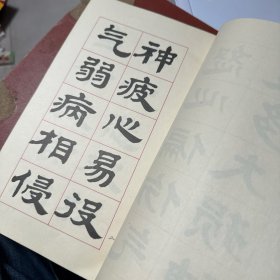 神疲心易役
气弱病相侵